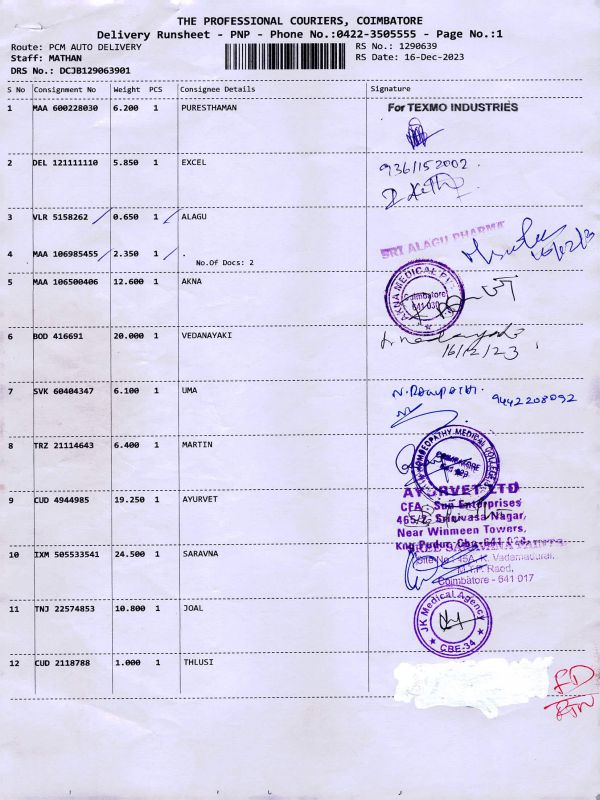 THE PROFESSIONAL COURIERS, COIMBATORE
Delivery Runsheet - PNP - Phone No.:0422-3505555 - Page No.:1
Route: PCM AUTO DELIVERY
RS No.: 1290639
Staff: MATHAN
RS Date: 16-Dec-2023
DRS No.: DCJB129063901
S No Consignment No Weight PCS Consignee Details Signature
1 MAA 600228030 6.200 1 PURESTHAMAN
For TEXMO INDUSTRIES
2 DEL 121111110 5.850 1 EXCEL
9361152002.
3 VLR 5158262 0.650 1 ALAGU
SRI ALAGU PHARMA
16/12/23
4 MAA 106985455 2.350 1 .
No.Of Docs: 2
5 MAA 106500406 12.600 1 AKNA
AKNA MEDICAL
Coimbatore
641 030
6 BOD 416691 20.000 1 VEDANAYAKI
16/12/23
7 SVK 60404347 6.100 1 UMA
9442208092
8 TRZ 21114643 6.400 1 MARTIN
HOMOEOPATHY MEDICAL COLLEGE
COIMBATORE
9 CUD 4944985 19.250 1 AYURVET
AYURVET LTD
CFA - Sun Enterprises
Srinivasa Nagar,
Near Winmeen Towers,
10 IXM 505533541 24.500 1 SARAVNA
Coimbatore - 641 017
11 TNJ 22574853 10.800 1 JOAL
JK Medical Agency
CBE-34
12 CUD 2118788 1.000 1 THLUSI